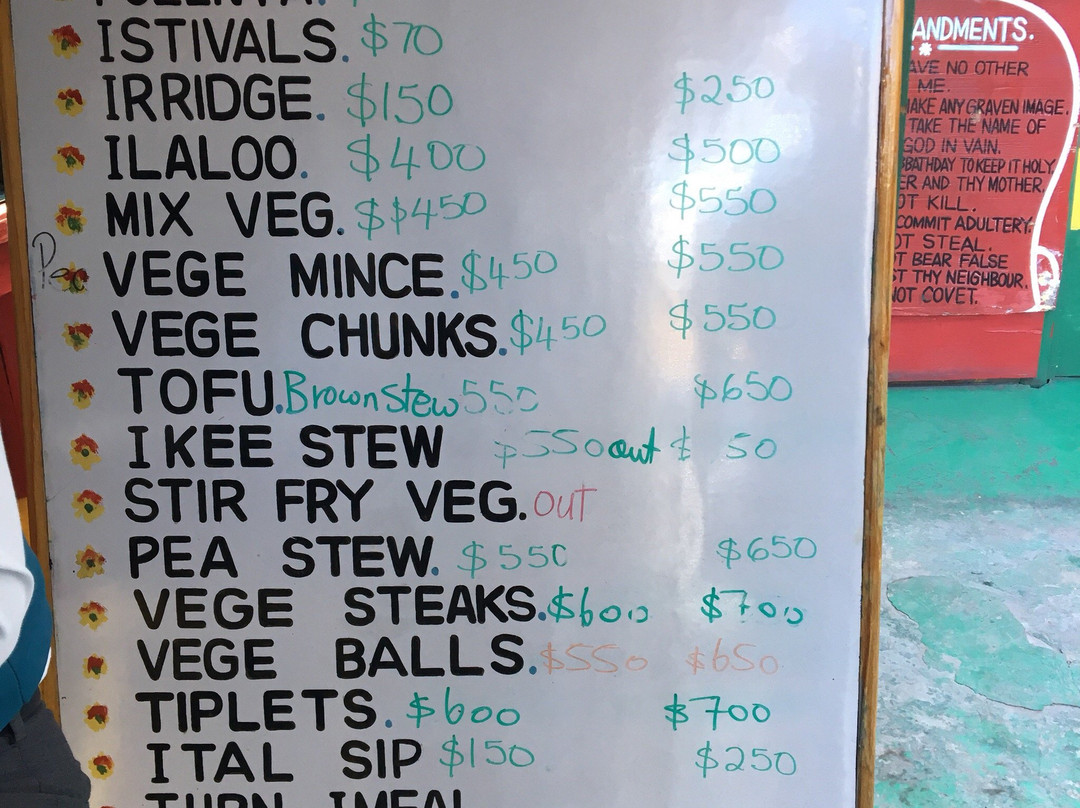 ISTIVALS. $70
IRRIDGE. $150 $250
ILALOO. $400 $500
MIX VEG. $$450 $550
VEGE MINCE. $450 $550
VEGE CHUNKS. $450 $550
TOFU. Brown Stew 550 $650
I KEE STEW $550 out $ 50
STIR FRY VEG. OUT
PEA STEW. $550 $650
VEGE STEAKS. $600 $700
VEGE BALLS. $550 $650
TIPLETS. $600 $700
ITAL SIP $150 $250
ANDMENTS.
AVE NO OTHER
ME.
MAKE ANY GRAVEN IMAGE.
TAKE THE NAME OF
GOD IN VAIN.
BBATHDAY TO KEEP IT HOLY
ER AND THY MOTHER.
OT KILL.
COMMIT ADULTERY.
OT STEAL.
T BEAR FALSE
ST THY NEIGHBOUR.
NOT COVET.